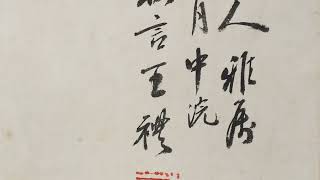 人雅屬
月中浣
言王禮